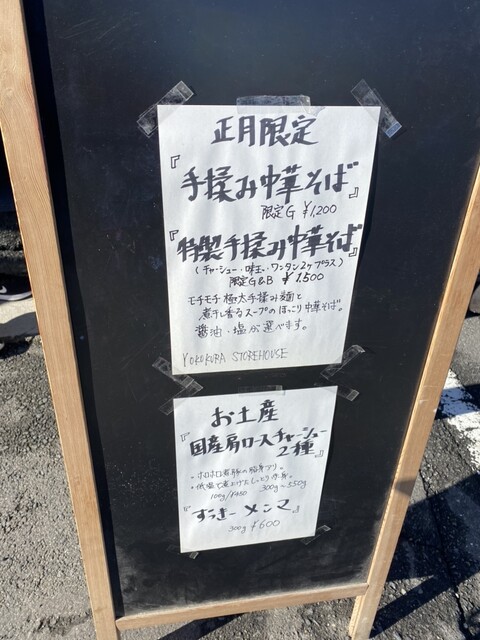 正月限定
『手揉み中華そば』
限定G ¥1,200
『特製手揉み中華そば』
(チャーシュー・味玉・ワンタン2ヶプラス)
限定G&B ¥1,500
モチモチ極太手揉み麺と
煮干し香るスープのほっこり中華そば。
醤油、塩から選べます。
YOKOKURA STOREHOUSE
お土産
『国産肩ロースチャーシュー
2種。』
・ホロホロ煮豚の脂身アリ。
・低温で煮上げたしっとり赤身。
100g/¥450 300g~550g
『すっきー メンマ』
300g ¥600